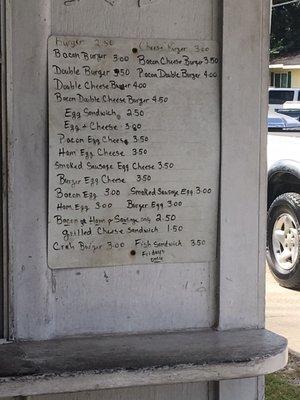 Burger 2.50 Cheese Burger 3.00
Bacon Burger 3.00 Bacon Cheese Burger 3.50
Double Burger 3.50 Bacon Double Burger 4.00
Double Cheese Burger 4.00
Bacon Double Cheese Burger 4.50
Egg Sandwich 2.50
Egg + Cheese 3.00
Bacon Egg Cheese 3.50
Ham Egg Cheese 3.50
Smoked Sausage Egg Cheese 3.50
Burger Egg Cheese 3.50
Bacon Egg 3.00 Smoked Sausage Egg 3.00
Ham Egg 3.00 Burger Egg 3.00
Bacon or Ham or Sausage only 2.50
grilled Cheese Sandwich 1.50
Crab Burger 3.00 Fish Sandwich 3.50
Fridays
only